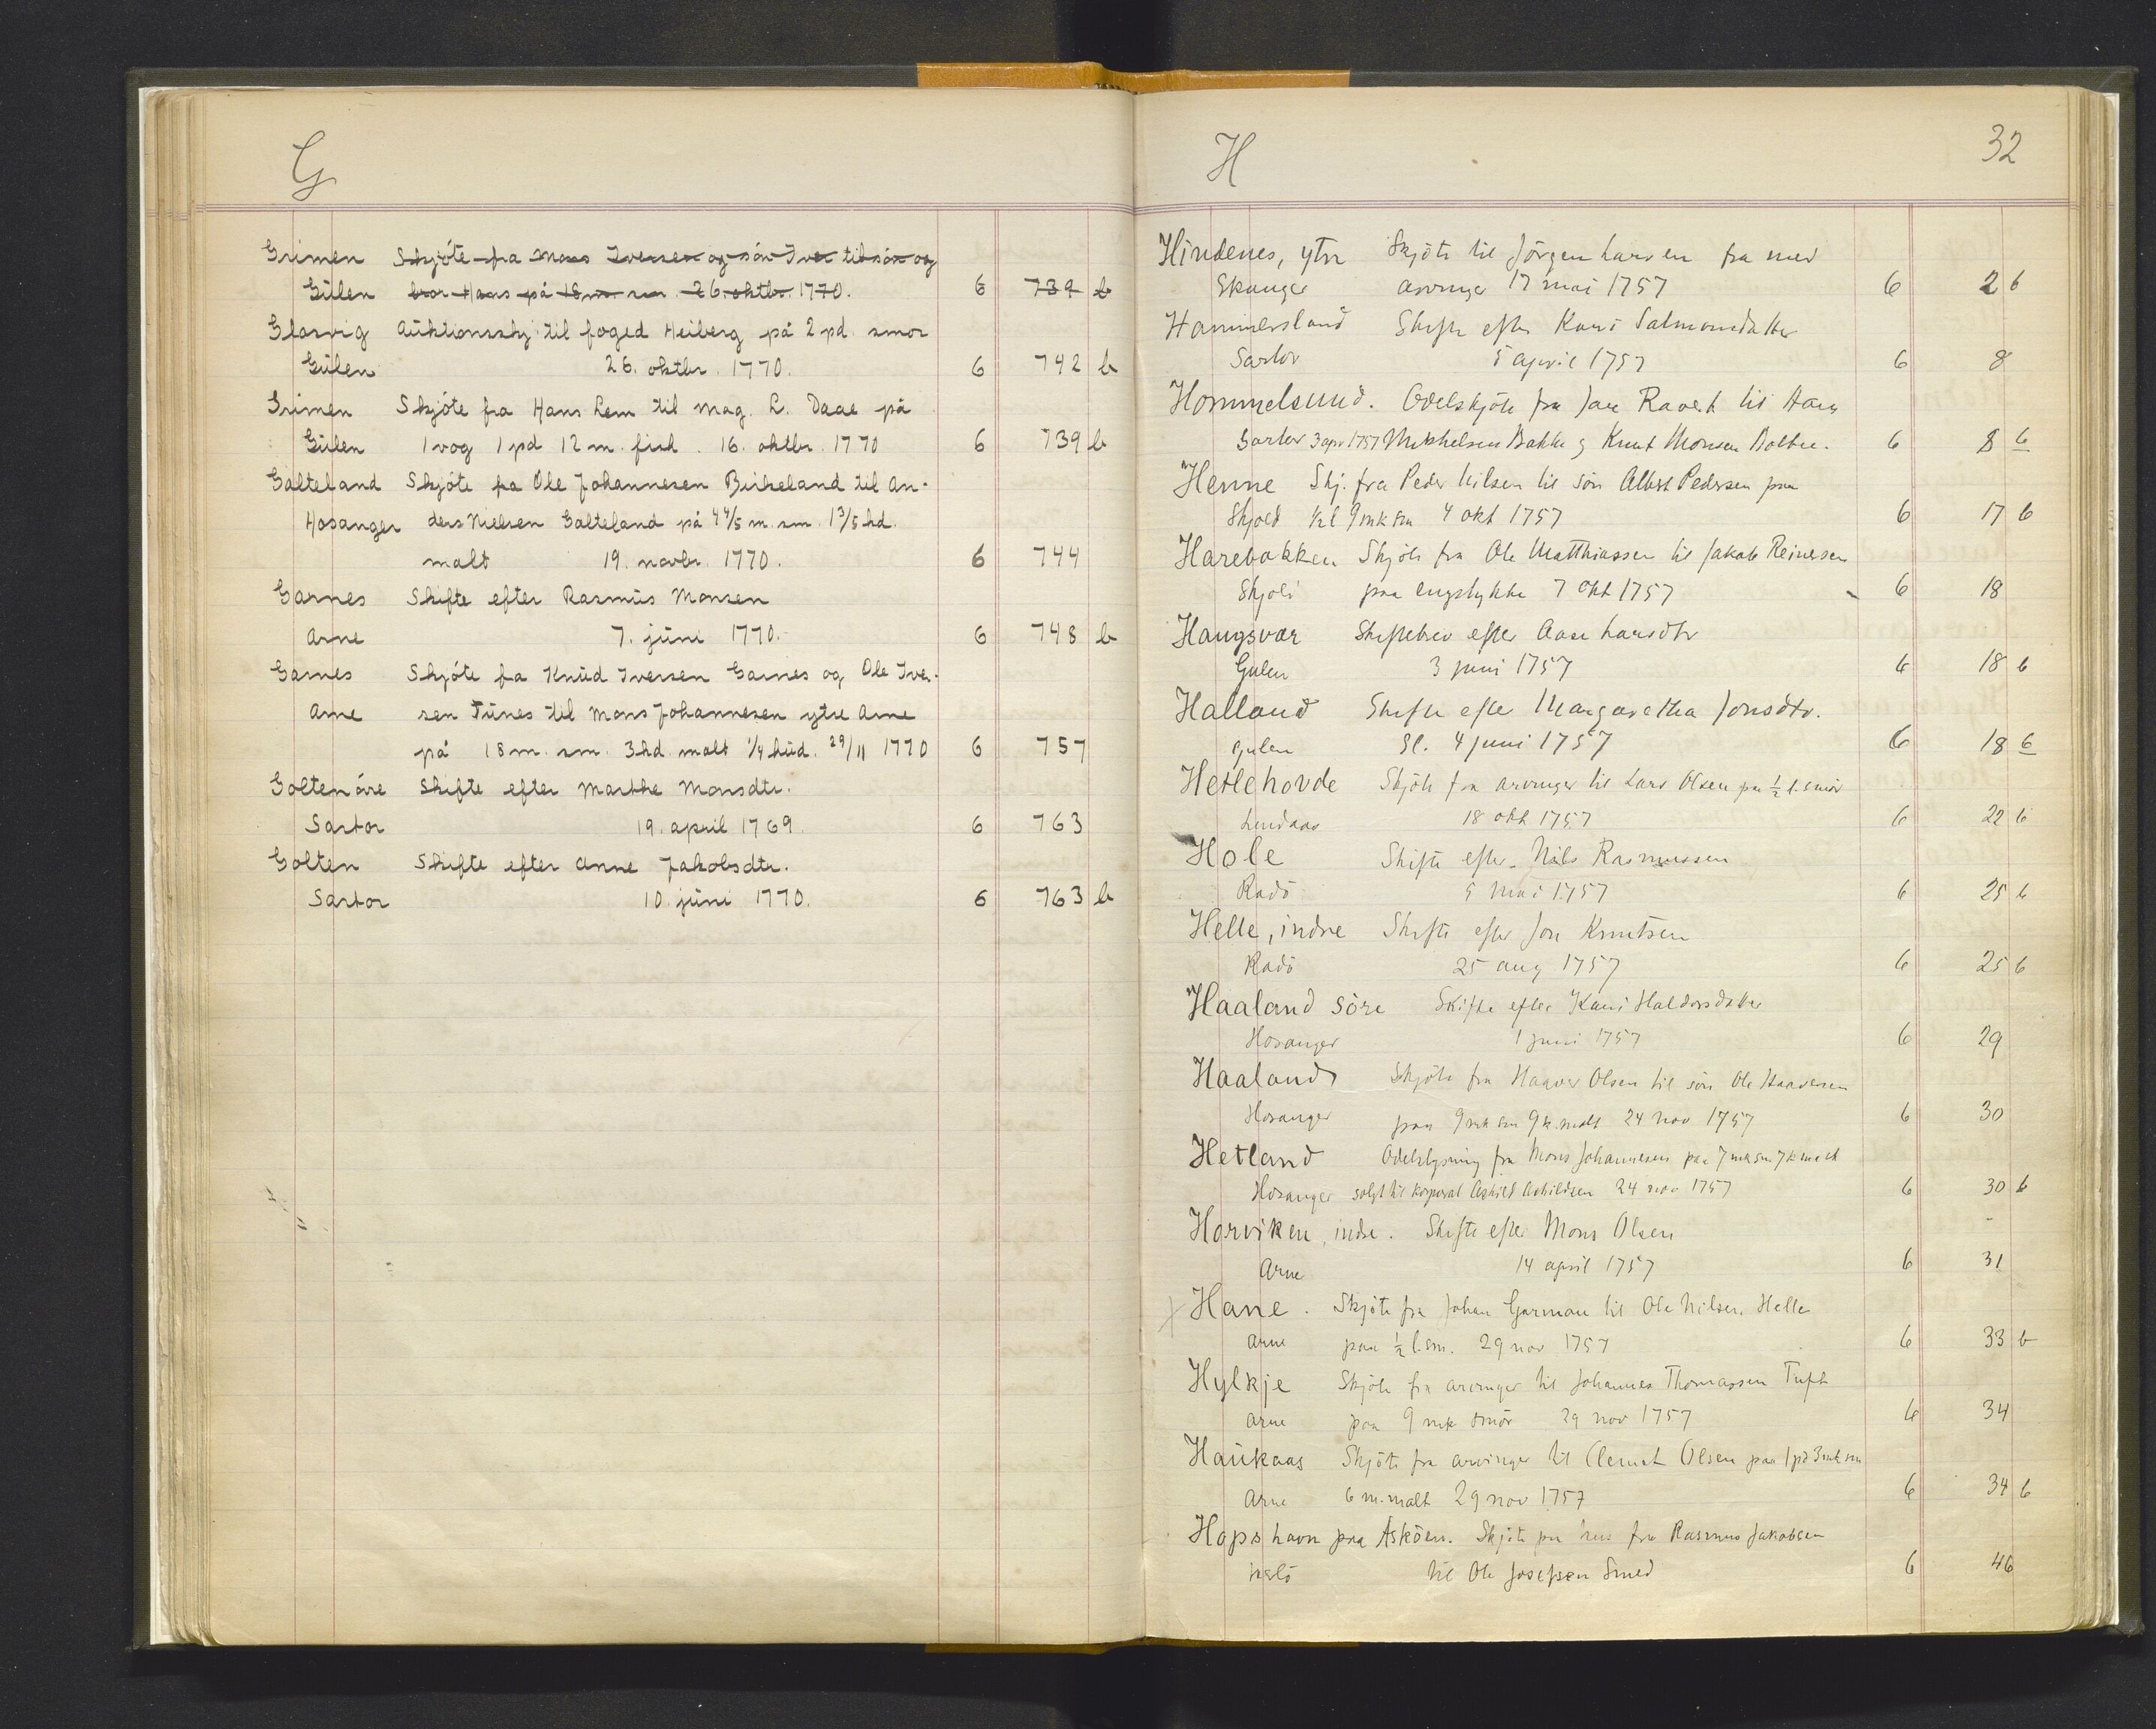 G
Grimen Skjöte fra Mons Iversen og sön Iver til sön og
Gülen bror Hans på 18 m. sm. 26. oktbr. 1770. 6 739 b
Glosvig Auktionsskj. til foged Heiberg på 2 pd. smör
Gülen 26. oktbr. 1770. 6 742 b
Grimen Skjöte fra Hans Lem til mag. C. Daae på
Gülen 1 vog 1 pd 12 m. fisk. 16. oktbr. 1770 6 739 b
Galteland Skjöte fra Ole Johannesen Birkeland til An-
Hosanger ders Nielsen Galteland på 4 4/5 m. sm. 1 3/5 hd.
malt 19. novbr. 1770. 6 744
Garnes Skifte efter Rasmüs Monsen
Arne 7. jüni 1770. 6 748 b
Garnes Skjöte fra Knüd Iversen Garnes og Ole Iver-
Arne sen Tünes til Mons Johannesen ytre Arne
på 18 m. sm. 3 hd. malt 1/4 hüd. 29/11 1770 6 757
Goltenöre Skifte efter Marthe Monsdtr.
Sartor 19. april 1769. 6 763
Golten Skifte efter Anne Jakobsdtr.
Sartor 10. jüni 1770. 6 763 b
H 32
Hindenes, ytre Skjöte til Jörgen Larsen fra med
Skanger arvinger 17 mai 1757 6 2 b
Hammersland Skifte efter Kari Salmonsdatter
Sartor 5 april 1757 6 8
Hommelsund. Odelskjöte fra Jan Ravert til Hans
Sartor 3 apr 1757 Mikkelsen Bakke og Knut Monsen Golten. 6 8 b
Henne Skj. fra Peder Nilsen til sön Albert Pedersen paa
Skjold 1/2 l 9 mk sm 4 okt 1757 6 17 b
Harebakken Skjöte fra Ole Matthiassen til Jakob Reinersen
Skjold paa engstykke 7 okt 1757 6 18
Haugsvær Skiftebrev efter Aase Larsdtr
Gulen 3 juni 1757 6 18 b
Halland Skifte efter Margaretha Jonsdtr.
Gulen 4 juni 1757 6 18 b
Hetlehovde Skjöte fra arvinger til Lars Olsen paa 1/2 l. smör
Lindaas 18 okt 1757 6 22 b
Hole Skifte efter Nils Rasmussen
Radö 5 mai 1757 6 25 b
Helle, indre Skifte efter Jon Knutsen
Radö 25 aug 1757 6 25 b
Haaland söre Skifte efter Kari Haldorsdatter
Hosanger 1 juni 1757 6 29
Haaland Skjöte fra Haaver Olsen til sön Ole Haaversen
Hosanger paa 9 mk sm 9 k. malt 24 nov 1757 6 30
Hetland Odelslysning fra Mons Johannesen paa 7 mk sm 7 k malt
Hosanger solgt til korporal Askild Askildsen 24 nov 1757 6 30 b
Horviken, indre. Skifte efter Mons Olsen
Arne 14 april 1757 6 31
Hane. Skjöte fra Johan Garman til Ole Nilsen Helle
Arne paa 1/2 l. sm. 29 nov 1757 6 33 b
Hylkje Skjöte fra arvinger til Johannes Thomassen Tuft
Arne paa 9 mk smör 29 nov 1757 6 34
Haukaas Skjöte fra arvinger til Clemet Olsen paa 1 pd 3 mk sm
Arne 6 m. malt 29 nov 1757 6 34 b
Hopshavn paa Asköen. Skjöte paa hus fra Rasmus Jakobsen
til Ole Josefsen Smed 6 46